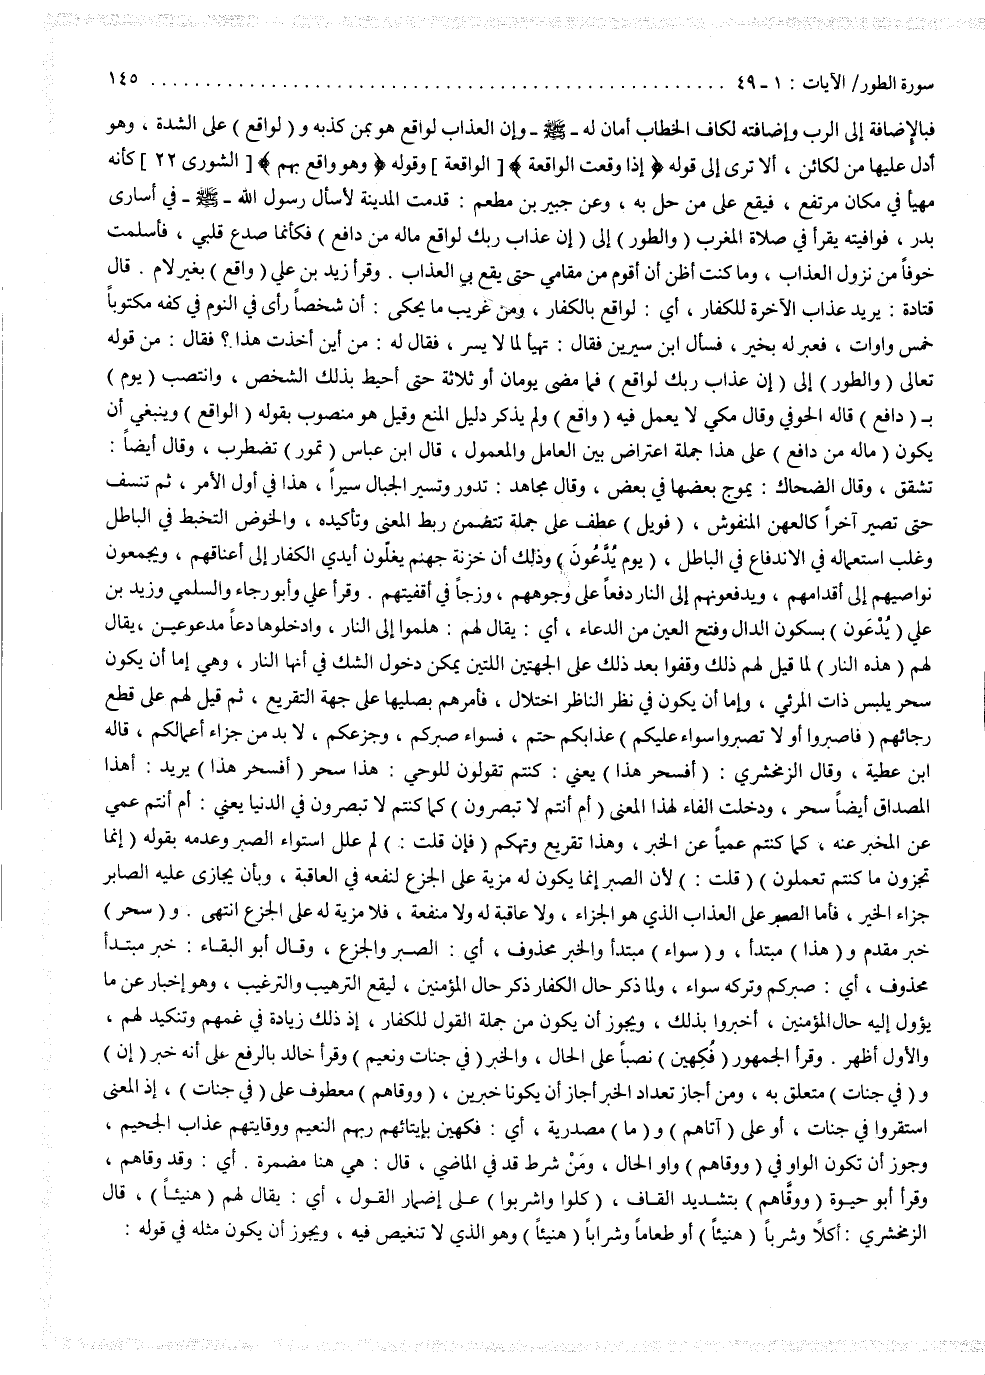 سورة الطور/ الآيات : ١ ـ ٤٩ ........................................................ ١٤٥
فبالإضافة إلى الرب وإضافته لكاف الخطاب أمان له ـ ﷺ ـ وإن العذاب لواقع هو بمن كذبه و ( لواقع ) على الشدة ، وهو
أدل عليها من لكائن ، ألا ترى إلى قوله ﴿ إذا وقعت الواقعة ﴾ [ الواقعة ] وقوله ﴿ وهو واقع بهم ﴾ [ الشورى ٢٢ ] كأنه
مهيأ في مكان مرتفع ، فيقع على من حل به ، وعن جبير بن مطعم : قدمت المدينة لأسأل رسول الله ـ ﷺ ـ في أسارى
بدر ، فوافيته يقرأ في صلاة المغرب ( والطور ) إلى ( إن عذاب ربك لواقع ماله من دافع ) فكأنما صدع قلبي ، فأسلمت
خوفاً من نزول العذاب ، وما كنت أظن أن أقوم من مقامي حتى يقع بي العذاب . وقرأ زيد بن علي ( واقع ) بغير لام . قال
قتادة : يريد عذاب الآخرة للكفار ، أي : لواقع بالكفار ، ومن غريب ما يحكى : أن شخصاً رأى في النوم في كفه مكتوباً
خمس واوات ، فعبر له بخير ، فسأل ابن سيرين فقال : تهيأ لما لا يسر ، فقال له : من أين أخذت هذا ؟ فقال : من قوله
تعالى ( والطور ) إلى ( إن عذاب ربك لواقع ) فما مضى يومان أو ثلاثة حتى أحيط بذلك الشخص ، وانتصب ( يوم )
بـ ( دافع ) قاله الحوفي وقال مكي لا يعمل فيه ( واقع ) ولم يذكر دليل المنع وقيل هو منصوب بقوله ( الواقع ) وينبغي أن
يكون ( ماله من دافع ) على هذا جملة اعتراض بين العامل والمعمول ، قال ابن عباس ( تمور ) تضطرب ، وقال أيضاً :
تشقق ، وقال الضحاك : يموج بعضها في بعض ، وقال مجاهد : تدور وتسير الجبال سيراً ، هذا في أول الأمر ، ثم تنسف
حتى تصير آخراً كالعهن المنفوش ، ( فويل ) عطف على جملة تتضمن ربط المعنى وتأكيده ، والخوض التخبط في الباطل
وغلب استعماله في الاندفاع في الباطل ، ( يوم يُدَّعُونَ ) وذلك أن خزنة جهنم يغلّون أيدي الكفار إلى أعناقهم ، ويجمعون
نواصيهم إلى أقدامهم ، ويدفعونهم إلى النار دفعاً على وجوههم ، وزجاً في أقفيتهم . وقرأ علي وأبو رجاء والسلمي وزيد بن
علي ( يُدْعَون ) بسكون الدال وفتح العين من الدعاء ، أي : يقال لهم : هلموا إلى النار ، وادخلوها دعاً مدعوعين ، يقال
لهم ( هذه النار ) لما قيل لهم ذلك وقفوا بعد ذلك على الجهتين اللتين يمكن دخول الشك في أنها النار ، وهي إما أن يكون
سحر يلبس ذات المرئي ، وإما أن يكون في نظر الناظر اختلال ، فأمرهم بصليها على جهة التقريع ، ثم قيل لهم على قطع
رجائهم ( فاصبروا أو لا تصبروا سواء عليكم ) عذابكم حتم ، فسواء صبركم ، وجزعكم ، لا بد من جزاء أعمالكم ، قاله
ابن عطية ، وقال الزمخشري : ( أفسحر هذا ) يعني : كنتم تقولون للوحي : هذا سحر ( أفسحر هذا ) يريد : أهذا
المصداق أيضاً سحر ، ودخلت الفاء لهذا المعنى ( أم أنتم لا تبصرون ) كما كنتم لا تبصرون في الدنيا يعني : أم أنتم عمي
عن المخبر عنه ، كما كنتم عمياً عن الخبر ، وهذا تقريع وتهكم ( فإن قلت : ) لم علل استواء الصبر وعدمه بقوله ( إنما
تجزون ما كنتم تعملون ) ( قلت : ) لأن الصبر إنما يكون له مزية على الجزع لنفعه في العاقبة ، وبأن يجازى عليه الصابر
جزاء الخير ، فأما الصبر على العذاب الذي هو الجزاء ، ولا عاقبة له ولا منفعة ، فلا مزية له على الجزع انتهى . و ( سحر )
خبر مقدم و ( هذا ) مبتدأ ، و ( سواء ) مبتدأ والخبر محذوف ، أي : الصبر والجزع ، وقال أبو البقاء : خبر مبتدأ
محذوف ، أي : صبركم وتركه سواء ، ولما ذكر حال الكفار ذكر حال المؤمنين ، ليقع الترهيب والترغيب ، وهو إخبار عن ما
يؤول إليه حال المؤمنين ، أخبروا بذلك ، ويجوز أن يكون من جملة القول للكفار ، إذ ذلك زيادة في غمهم وتنكيد لهم ،
والأول أظهر . وقرأ الجمهور ( فُكِهين ) نصباً على الحال ، والخبر ( في جنات ونعيم ) وقرأ خالد بالرفع على أنه خبر ( إن )
و ( في جنات ) متعلق به ، ومن أجاز تعداد الخبر أجاز أن يكونا خبرين ، ( ووقاهم ) معطوف على ( في جنات ) ، إذ المعنى
استقروا في جنات ، أو على ( آتاهم ) و ( ما ) مصدرية ، أي : فكهين بإيتائهم ربهم النعيم ووقايتهم عذاب الجحيم ،
وجوز أن تكون الواو في ( ووقاهم ) واو الحال ، ومَنْ شرط قد في الماضي ، قال : هي هنا مضمرة . أي : وقد وقاهم ،
وقرأ أبو حيوة ( ووقَّاهم ) بتشديد القاف ، ( كلوا واشربوا ) على إضمار القول ، أي : يقال لهم ( هنيئاً ) ، قال
الزمخشري : أكلًا وشرباً ( هنيئاً ) أو طعاماً وشراباً ( هنيئاً ) وهو الذي لا تنغيص فيه ، ويجوز أن يكون مثله في قوله :